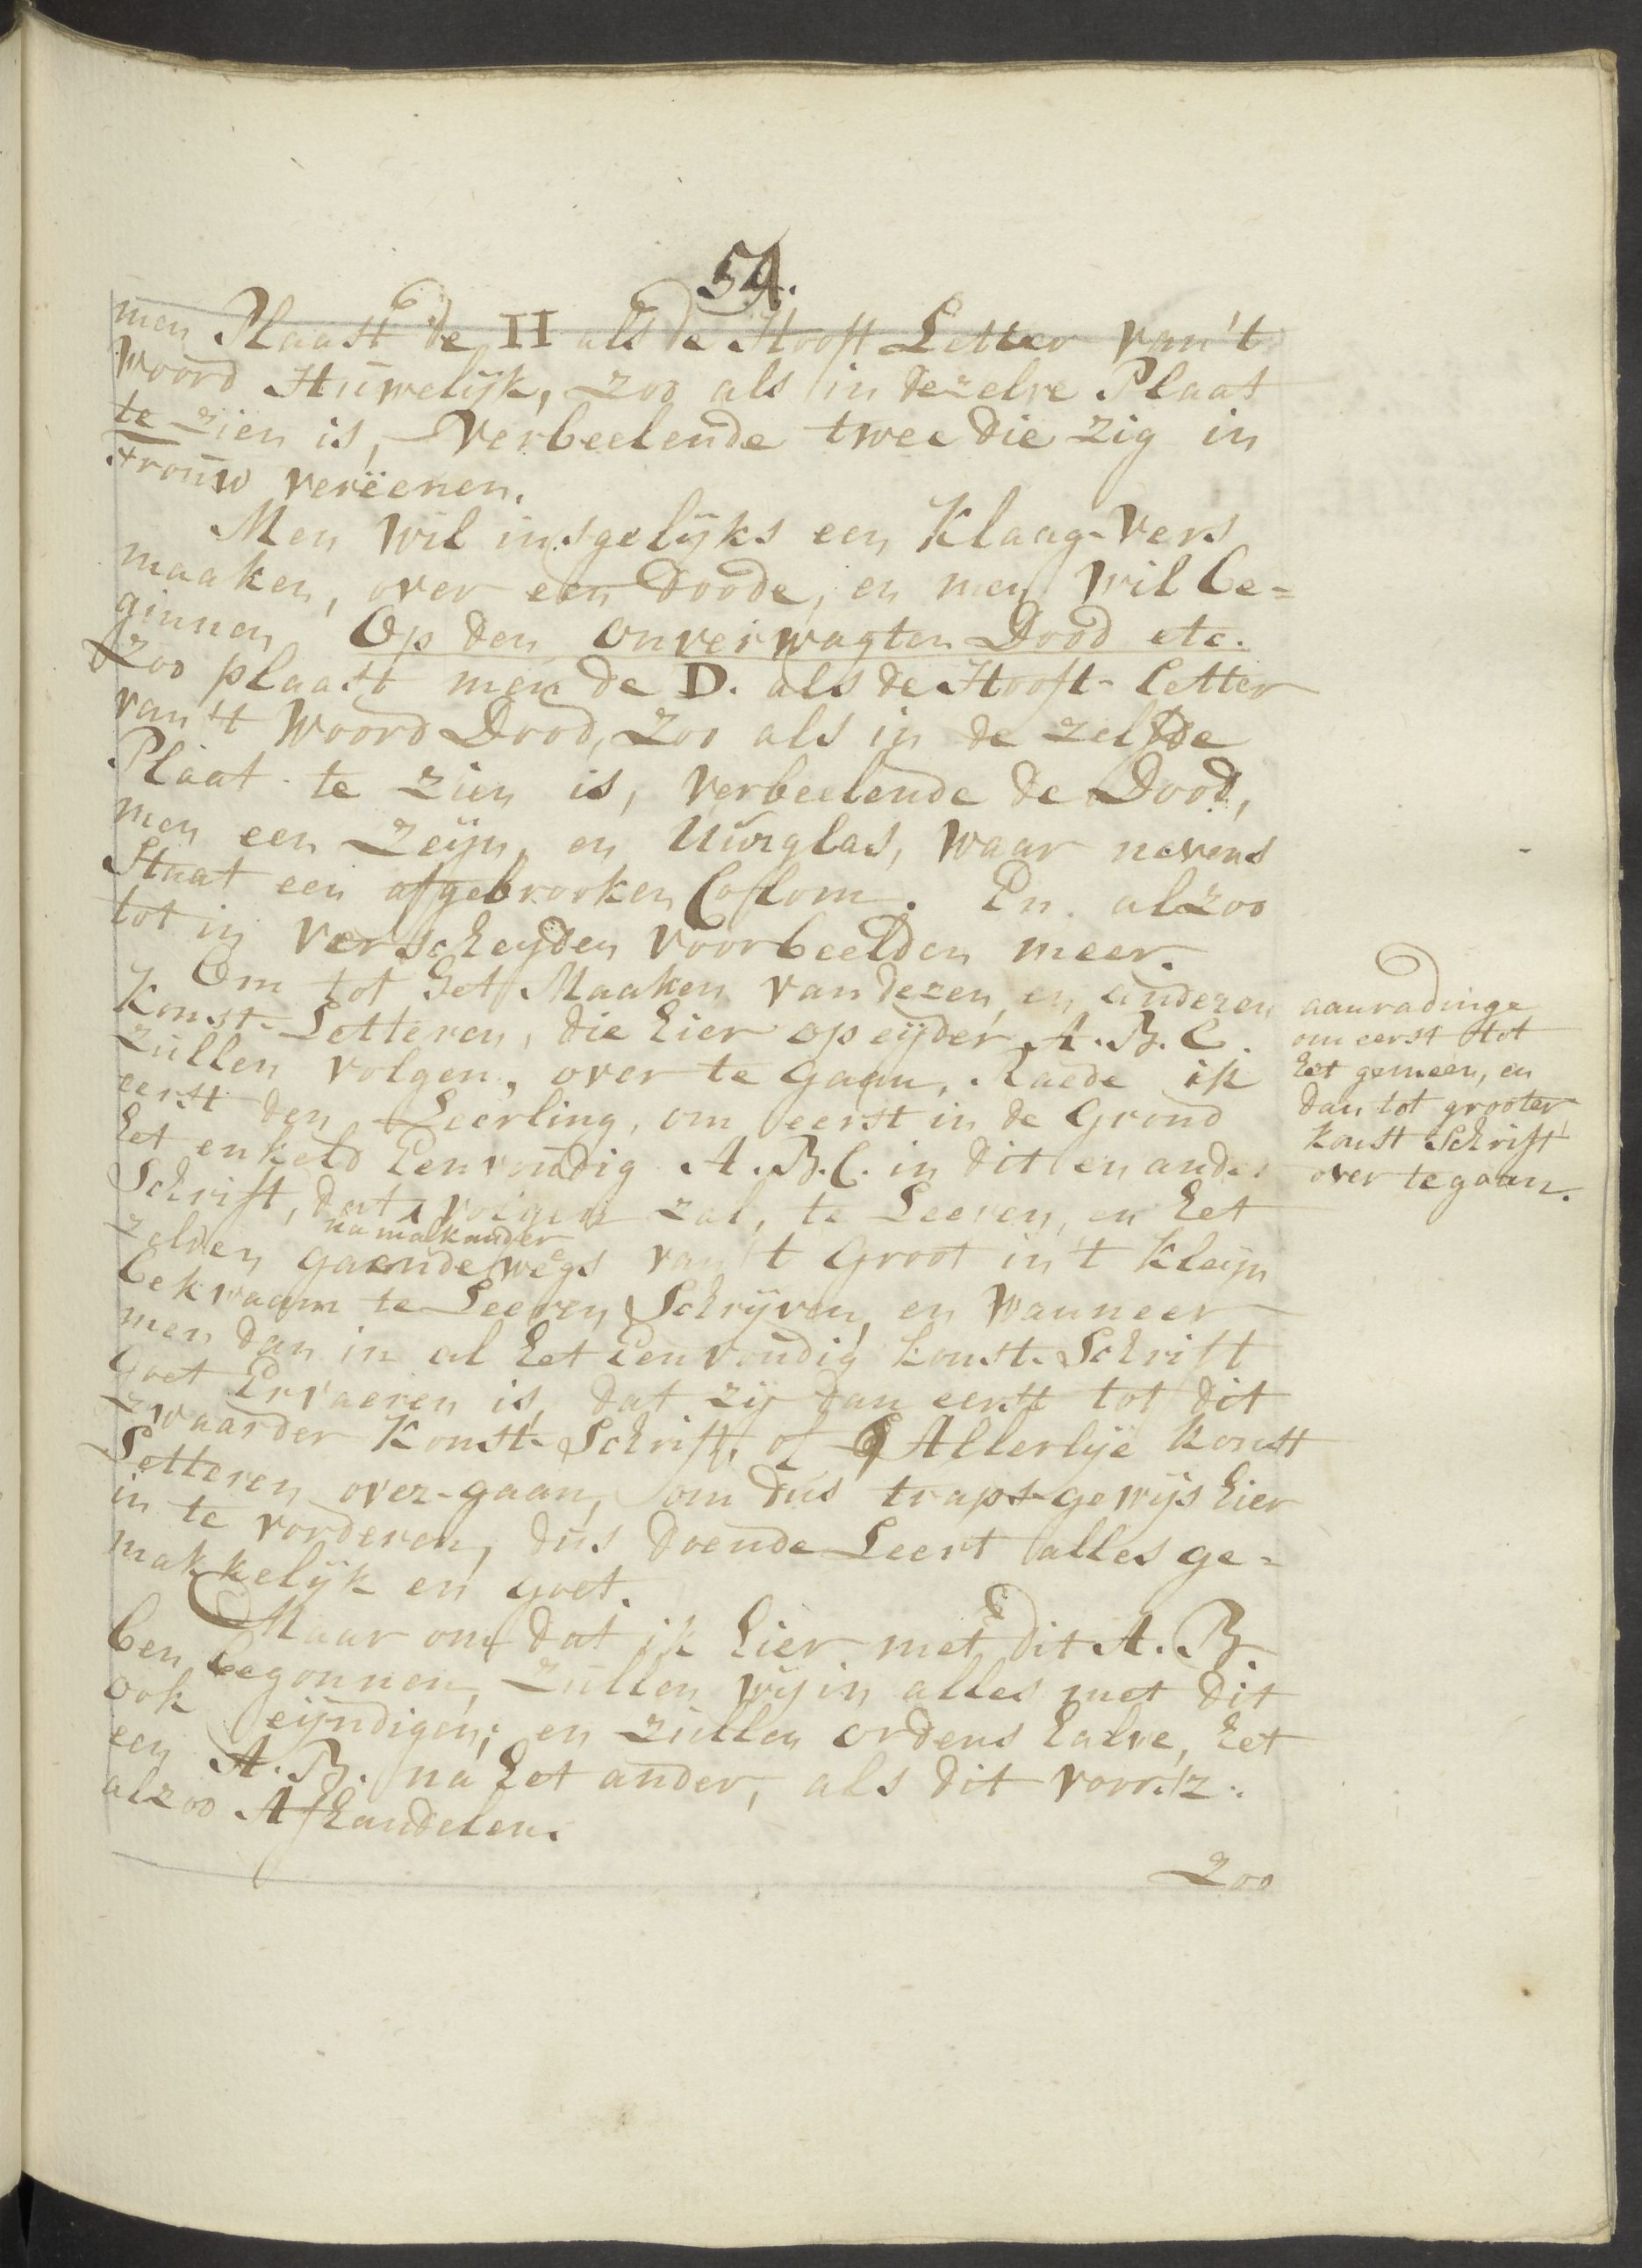 59.
men Plaast de H als de Hooft Letter van't
woord Huwelijk, zoo als in dezelve Plaat
te zien is, verbeelende twee die zig in
trouw vereenen.
Men wil insgelijks een Klaag-Vers
maaken, over een doode, en men wil be=
ginnen Op den onverwagten Dood etc.
Zoo plaast men de D. als de Hooft-letter
van 't woord Dood, zoo als in de zelfde
Plaat te zien is, verbeelende de Dood,
men een Zeijn, en Uurglas, waar nevens
Staat een afgebrooken Collom. En alzoo
tot in verscheijden voorbeelden meer.
Om tot het Maaken van dezen, en anderen
Konst-Letteren, die hier op eijder A.B.C.
zullen volgen, over te gaan, Raede ik
eerst den Leerling, om eerst in de Grond
het enkeld Eenvoudig A.B.C. in dit en ander
Schrift, dat volgen zal, te Leeren, en het
na malkander
zelven gaende wegs van 't Groot in 't Kleijn
bekwaam te Leeren Schrijven, en wanneer
men dan in al het Eenvoudig konst-Schrift
goet Ervaeren is, dat zij dan eerst tot dit
zwaarder Konst-Schrift, of Allerlije konst
Letteren over-gaan, om dus traps-gewijs hier
in te vorderen, dus doende Leert alles ge=
makkelijk en goet.
Maar om dat ik hier met dit A.B.
ben begonnen, zullen wij in alles met dit
ook eijndigen; en zullen ordens halve, het
een A.B. na het ander, als dit voorsz.
alzoo Afhandelen.
Zoo
aanradinge
om eerst tot
het gemeen, en
dan tot grooter
konst Schrift
over te gaan.